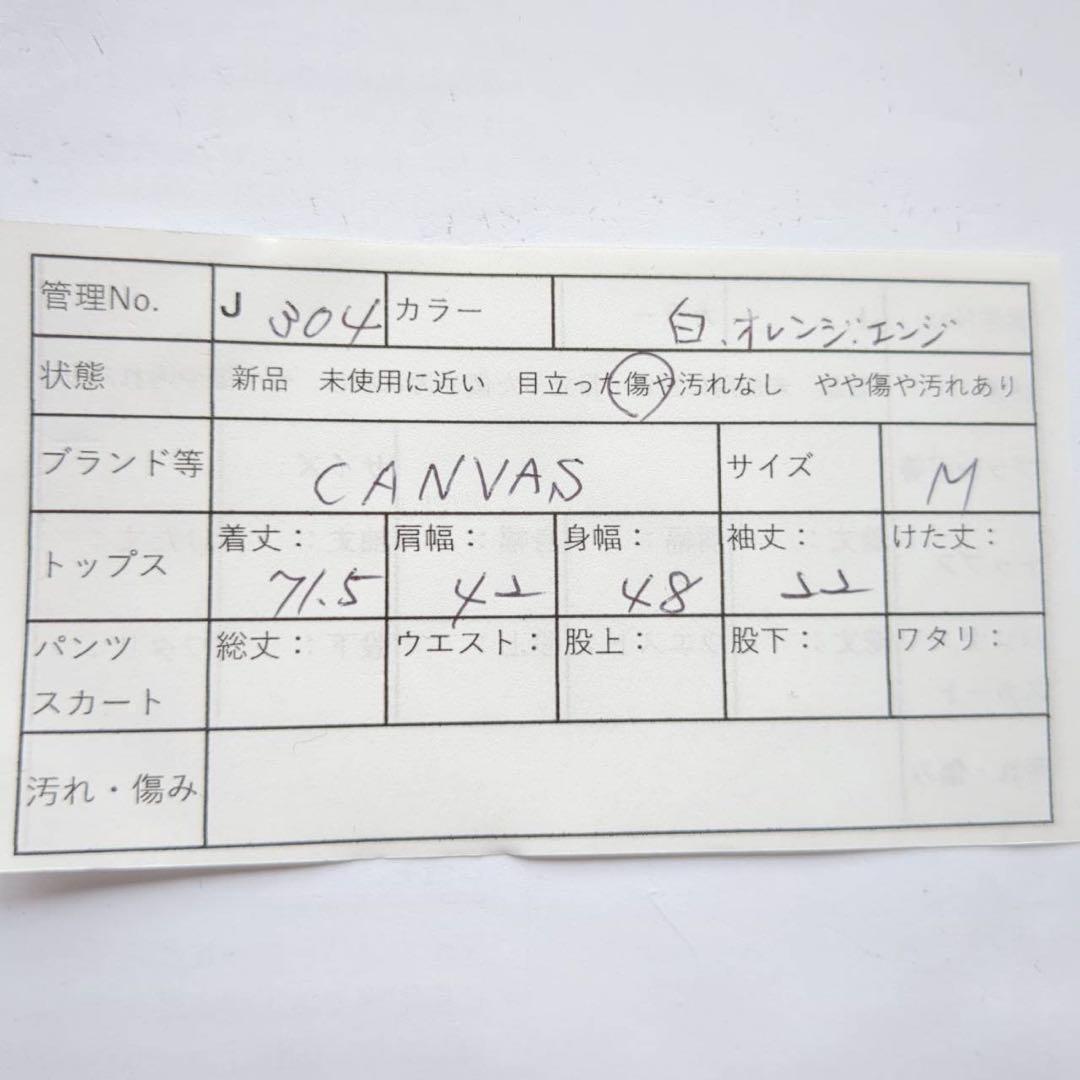 管理No. J 304 カラー 白.オレンジ.エンジ
状態 新品 未使用に近い 目立った傷や汚れなし やや傷や汚れあり
ブランド等 CANVAS サイズ M
トップス 着丈: 71.5 肩幅: 42 身幅: 48 袖丈: 22 けた丈:
パンツ スカート 総丈: ウエスト: 股上: 股下: ワタリ:
汚れ・傷み